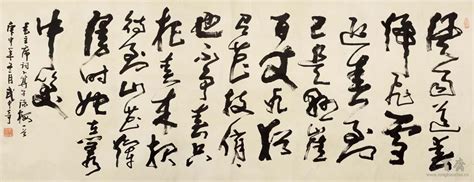 风雨送春
归飞雪
迎春到
已是悬崖
百丈冰犹
有花枝俏
也不争春只
把春来报
待到山花烂
漫时她在丛
中笑
毛主席词卜算子咏梅一首
庚申年五月武中奇